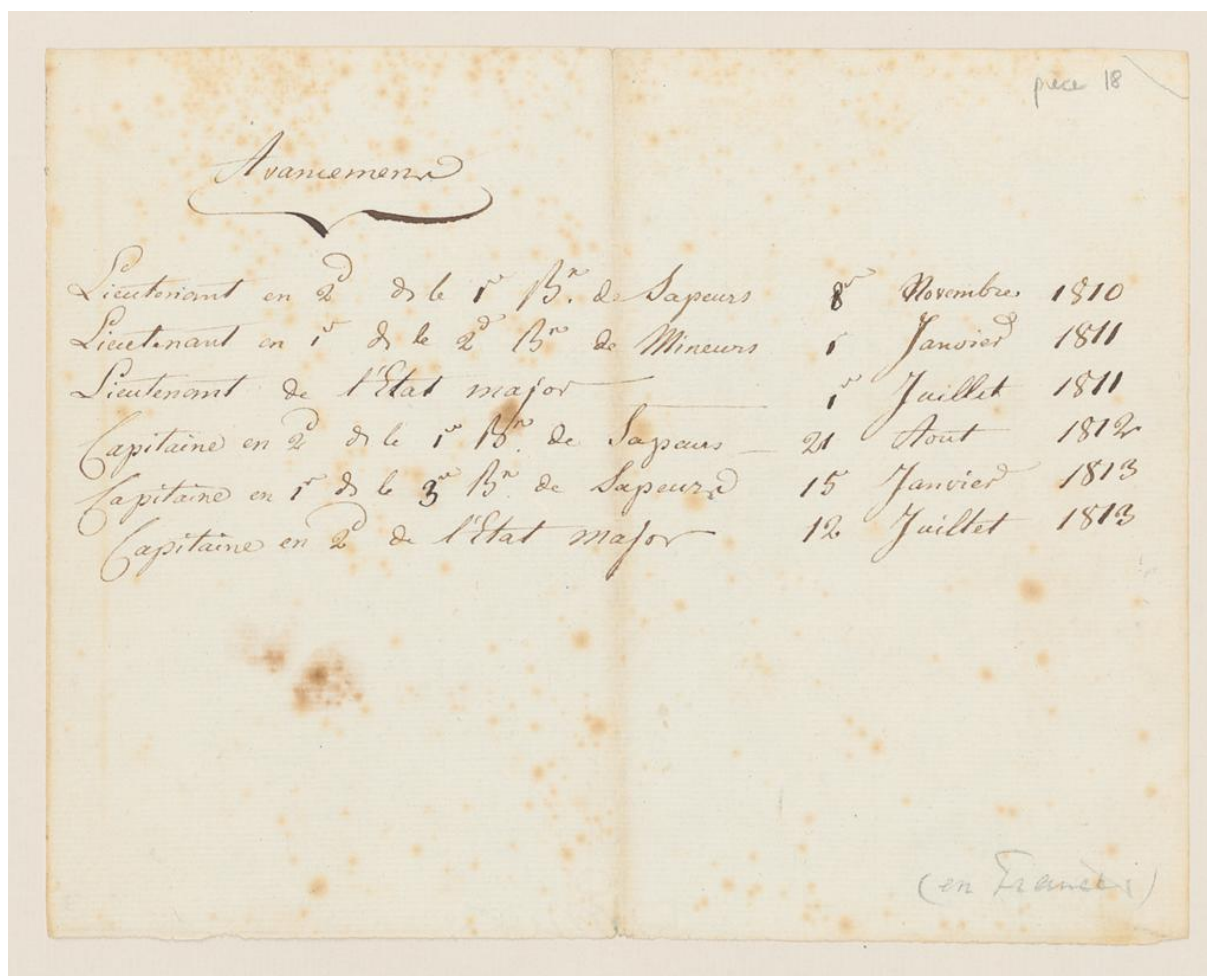 piece 18
Avancement
Lieutenant en 2d ds le 1r Bn. de Sapeurs 8r Novembre 1810
Lieutenant en 1r ds le 2d Bn de Mineurs 1 Janvier 1811
Lieutenant de l'Etat major 1r Juillet 1811
Capitaine en 2d ds le 1r Bn. de Sapeurs 21 Aout 1812
Capitaine en 1r ds le 3e Bn. de Sapeurs 15 Janvier 1813
Capitaine en 2d de l'Etat major 12 Juillet 1813
(en France)